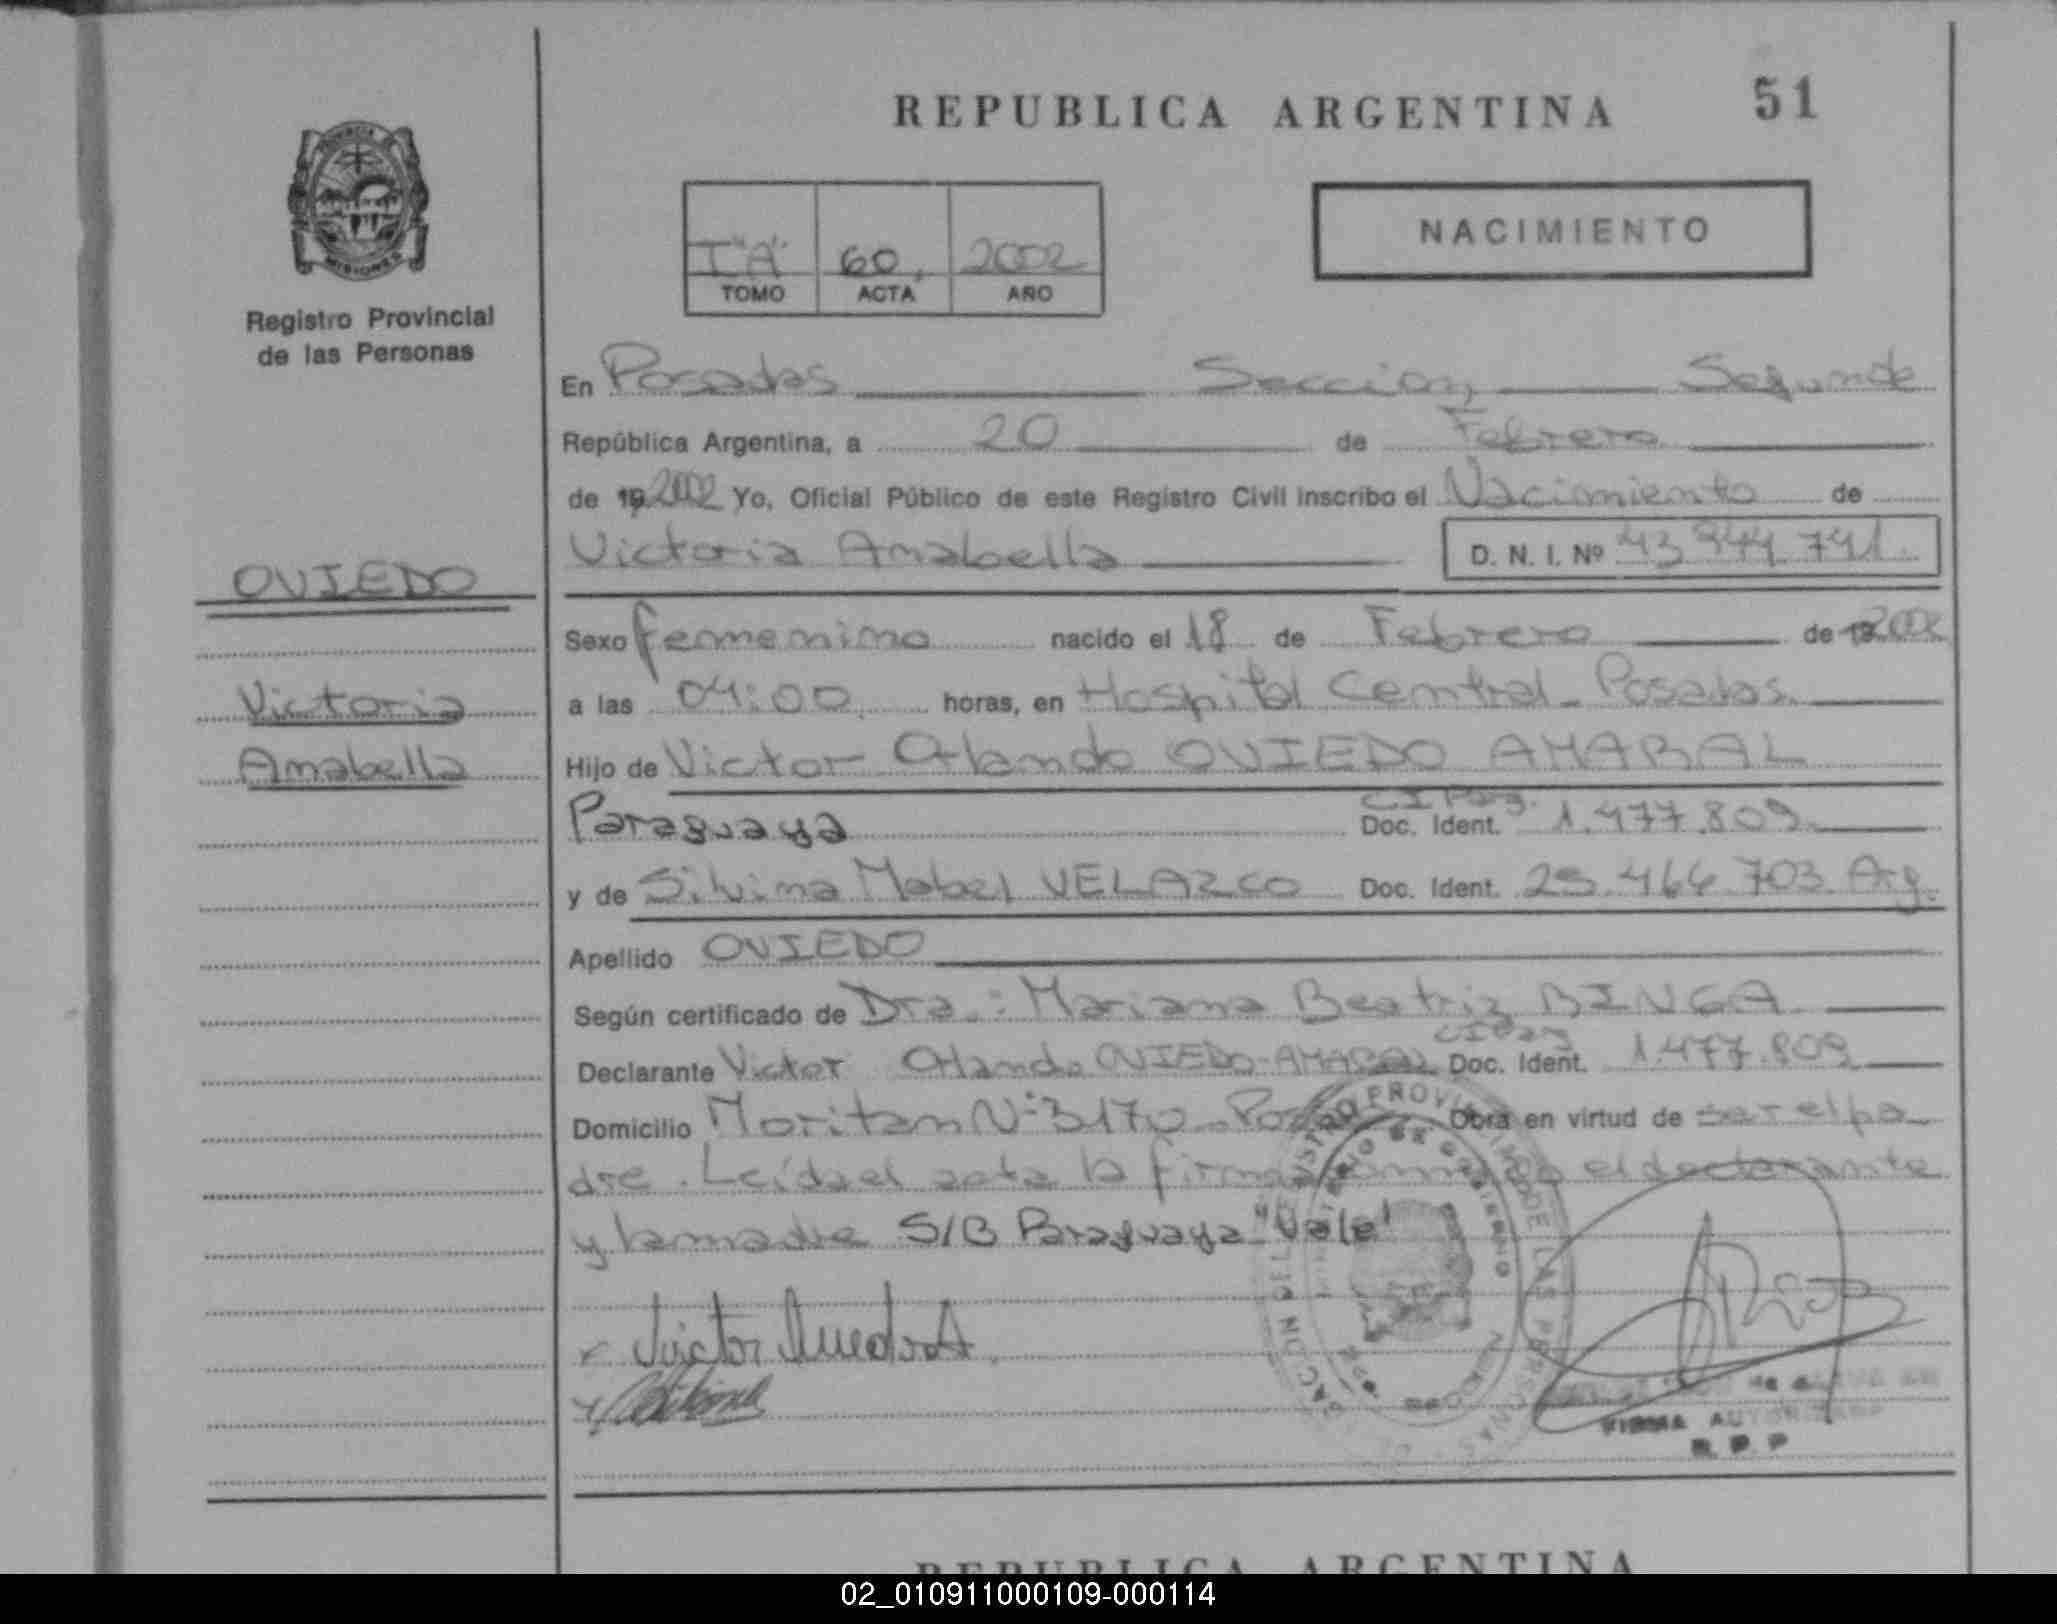 REPUBLICA ARGENTINA 51
PROVINCIA
MISIONES
Registro Provincial
de las Personas
NACIMIENTO
I "A" 60, 2002
TOMO ACTA AÑO
En Posadas Seccion, Segunda
República Argentina, a 20 de Febrero
de 19 2002 Yo, Oficial Público de este Registro Civil inscribo el Nacimiento de
Victoria Anabella D. N. I. Nº 43 944 741
OVIEDO
Sexo femenino nacido el 18 de Febrero de 19 2002
Victoria
a las 04:00 horas, en Hospital Central - Posadas.
Anabella
Hijo de Victor Orlando OVIEDO AMARAL
CI Parg.
Paraguaya Doc. Ident. 1.477.809
y de Silvina Mabel VELAZCO Doc. Ident. 25.466.703 Arg.
Apellido OVIEDO
Según certificado de Dra.: Mariana Beatriz BINGA
CI Parg
Declarante Victor Orlando OVIEDO AMARAL Doc. Ident. 1.477.809
Domicilio N° 3170 - Obra en virtud de ser el pa-
dre. Leída el acta la firma conmigo el declarante
y la madre S/B Paraguaya "Vale"
Victor Oviedo A.
FIRMA AUTORIZADA
R. P. P
REPUBLICA ARGENTINA
02_010911000109-000114